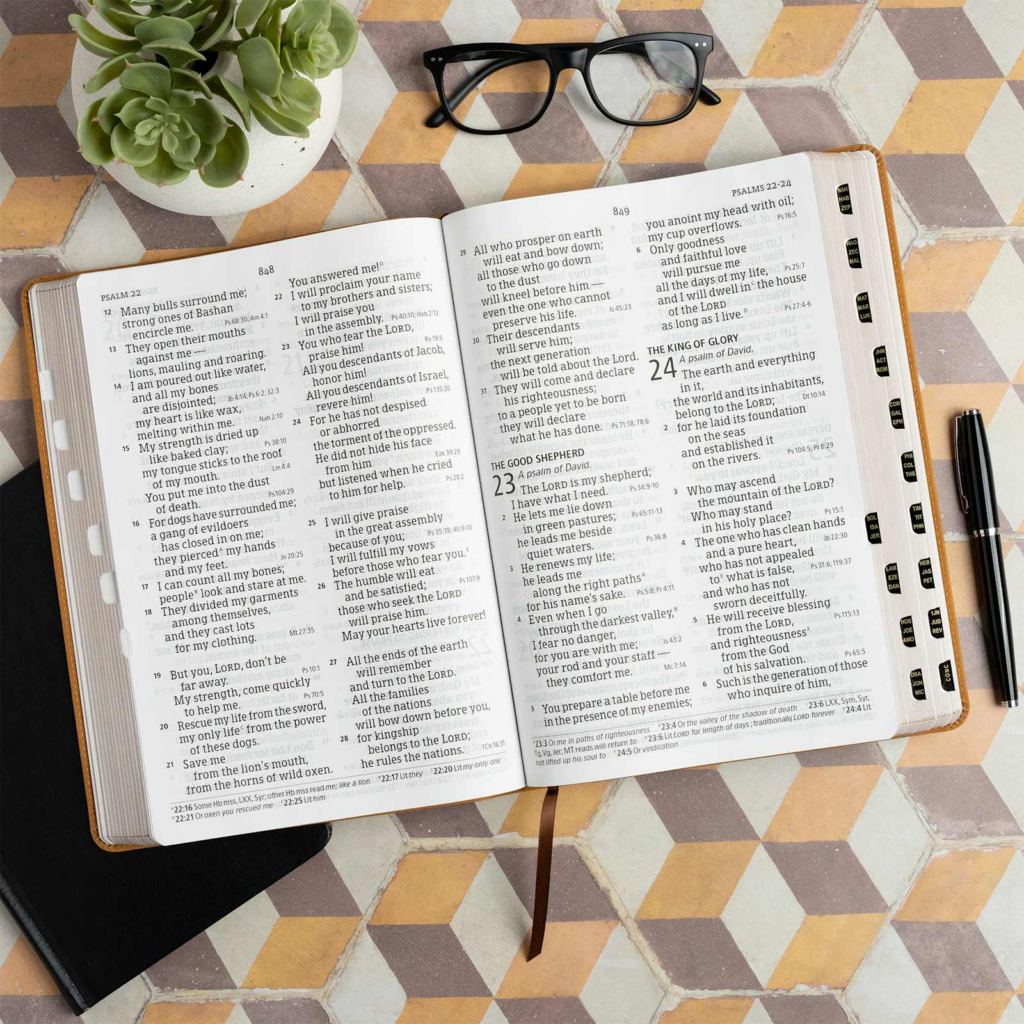 PSALM 22
848
12 Many bulls surround me;
strong ones of Bashan
encircle me. Ps 68:30; Am 4:1
13 They open their mouths
against me —
lions, mauling and roaring.
14 I am poured out like water,
and all my bones
are disjointed; Jb 4:14; Ps 6:2; 32:3
my heart is like wax,
melting within me. Nah 2:10
15 My strength is dried up Ps 38:10
like baked clay;
my tongue sticks to the roof
of my mouth. Lm 4:4
You put me into the dust
of death. Ps 104:29
16 For dogs have surrounded me;
a gang of evildoers
has closed in on me;
they pierced my hands
and my feet. Jn 20:25
17 I can count all my bones;
people look and stare at me.
18 They divided my garments
among themselves,
and they cast lots
for my clothing. Mt 27:35
19 But you, LORD, don't be
far away. Ps 10:1
My strength, come quickly
to help me. Ps 70:5
20 Rescue my life from the sword,
my only life from the power
of these dogs.
21 Save me
from the lion's mouth,
from the horns of wild oxen.
You answered me!
22 I will proclaim your name
to my brothers and sisters;
I will praise you
in the assembly. Ps 40:10; Heb 2:12
23 You who fear the LORD,
praise him! Ps 19:5
All you descendants of Jacob,
honor him!
All you descendants of Israel,
revere him! Ps 115:20
24 For he has not despised
or abhorred
the torment of the oppressed.
He did not hide his face
from him Ezk 39:29
but listened when he cried
to him for help. Ps 28:2
25 I will give praise
in the great assembly
because of you; Ps 35:18; 40:9-10
I will fulfill my vows
before those who fear you.
26 The humble will eat
and be satisfied; Ps 107:9
those who seek the LORD
will praise him.
May your hearts live forever!
27 All the ends of the earth
will remember
and turn to the LORD.
All the families
of the nations
will bow down before you,
28 for kingship
belongs to the LORD;
he rules the nations. 1Ch 16:31
22:16 Some Hb mss, LXX, Syr; other Hb mss read me; like a lion 22:17 Lit they 22:20 Lit my only one
22:21 Or oxen you rescued me 22:25 Lit him
849
PSALMS 22-24
29 All who prosper on earth
will eat and bow down;
all those who go down
to the dust
will kneel before him —
even the one who cannot
preserve his life. Is 45:23
30 Their descendants
will serve him;
the next generation
will be told about the Lord.
31 They will come and declare
his righteousness;
to a people yet to be born
they will declare
what he has done. Ps 71:18; 78:6
THE GOOD SHEPHERD
23 A psalm of David.
The LORD is my shepherd;
I have what I need. Ps 34:9-10
2 He lets me lie down
in green pastures; Ps 65:11-13
he leads me beside
quiet waters. Ps 36:8
3 He renews my life;
he leads me
along the right paths
for his name's sake. Ps 5:8; Pr 4:11
4 Even when I go
through the darkest valley,
I fear no danger,
for you are with me; Is 43:2
your rod and your staff —
they comfort me. Mc 7:14
5 You prepare a table before me
in the presence of my enemies;
you anoint my head with oil;
my cup overflows. Ps 16:5
6 Only goodness
and faithful love
will pursue me
all the days of my life, Ps 25:7
and I will dwell in the house
of the LORD Ps 27:4-6
as long as I live.
THE KING OF GLORY
24 A psalm of David.
The earth and everything
in it,
the world and its inhabitants,
belong to the LORD; Dt 10:14
2 for he laid its foundation
on the seas
and established it
on the rivers. Ps 104:5; Pr 8:29
3 Who may ascend
the mountain of the LORD?
Who may stand
in his holy place? Ps 15:1
4 The one who has clean hands
and a pure heart, Jb 22:30
who has not appealed
to what is false, Ps 31:6; 119:37
and who has not
sworn deceitfully.
5 He will receive blessing
from the LORD, Ps 115:13
and righteousness
from the God
of his salvation. Ps 65:5
6 Such is the generation of those
who inquire of him,
23:3 Or me in paths of righteousness 23:4 Or the valley of the shadow of death 23:6 LXX, Sym, Syr,
Tg, Vg, Jer; MT reads will return to 23:6 Lit LORD for length of days; traditionally LORD forever 24:4 Lit
not lifted up his soul to 24:5 Or vindication
NAH
HAB
ZEP
HAG
ZEC
MAL
MAT
MAR
LUK
JHN
ACT
ROM
COR
GAL
EPH
PHI
COL
THS
SOL
ISA
JER
TIM
TIT
PHN
LAM
EZE
DAN
HEB
JAS
PET
HOS
JOL
AMO
1JN
JUD
REV
OBA
JON
MIC
CONC